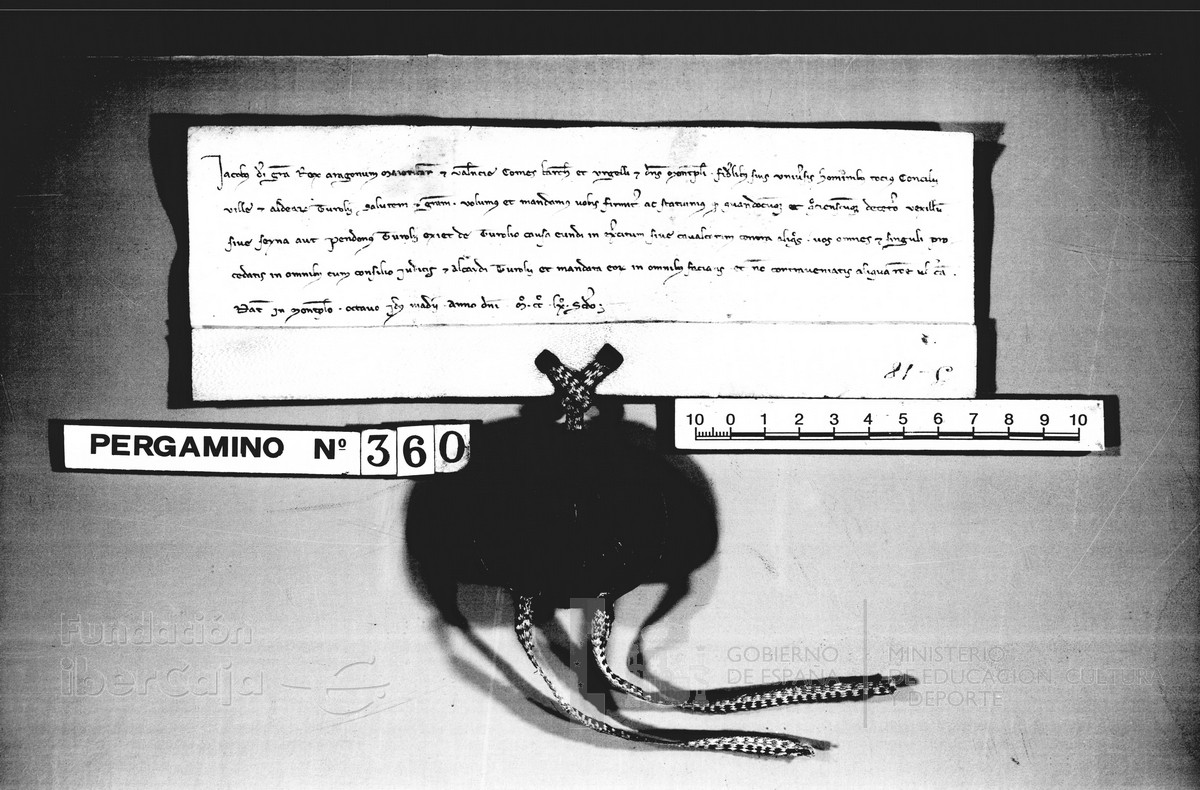 Jacobus dei gra Rex aragonum maioricar et valencie Comes barch et urgelli et dns montpli. fidelibus suis universis hominibus tocius Concilii
ville et aldear Turolii salutem et gram. volumus et mandamus vobis firmit ac statuimus quandocumq et detero vexillu
sive seyna aut pendonus Turolii exiet de Turolio causa eundi in exercitum sive cavalcatam contra aliqs. vos omnes et singuli pro
cedatis in omnibus cum consilio iudicis et alcaldi Turolii et mandata eor in omnibus faciatis. et no contraveniatis aliqua
Dat in montplo. octavo id madii. anno dni. mº. ccº. lxº. Scdo
81 -
PERGAMINO Nº 360
10 0 1 2 3 4 5 6 7 8 9 10
Fundación
iberCaja
GOBIERNO
DE ESPAÑA
MINISTERIO
DE EDUCACIÓN, CULTURA
Y DEPORTE